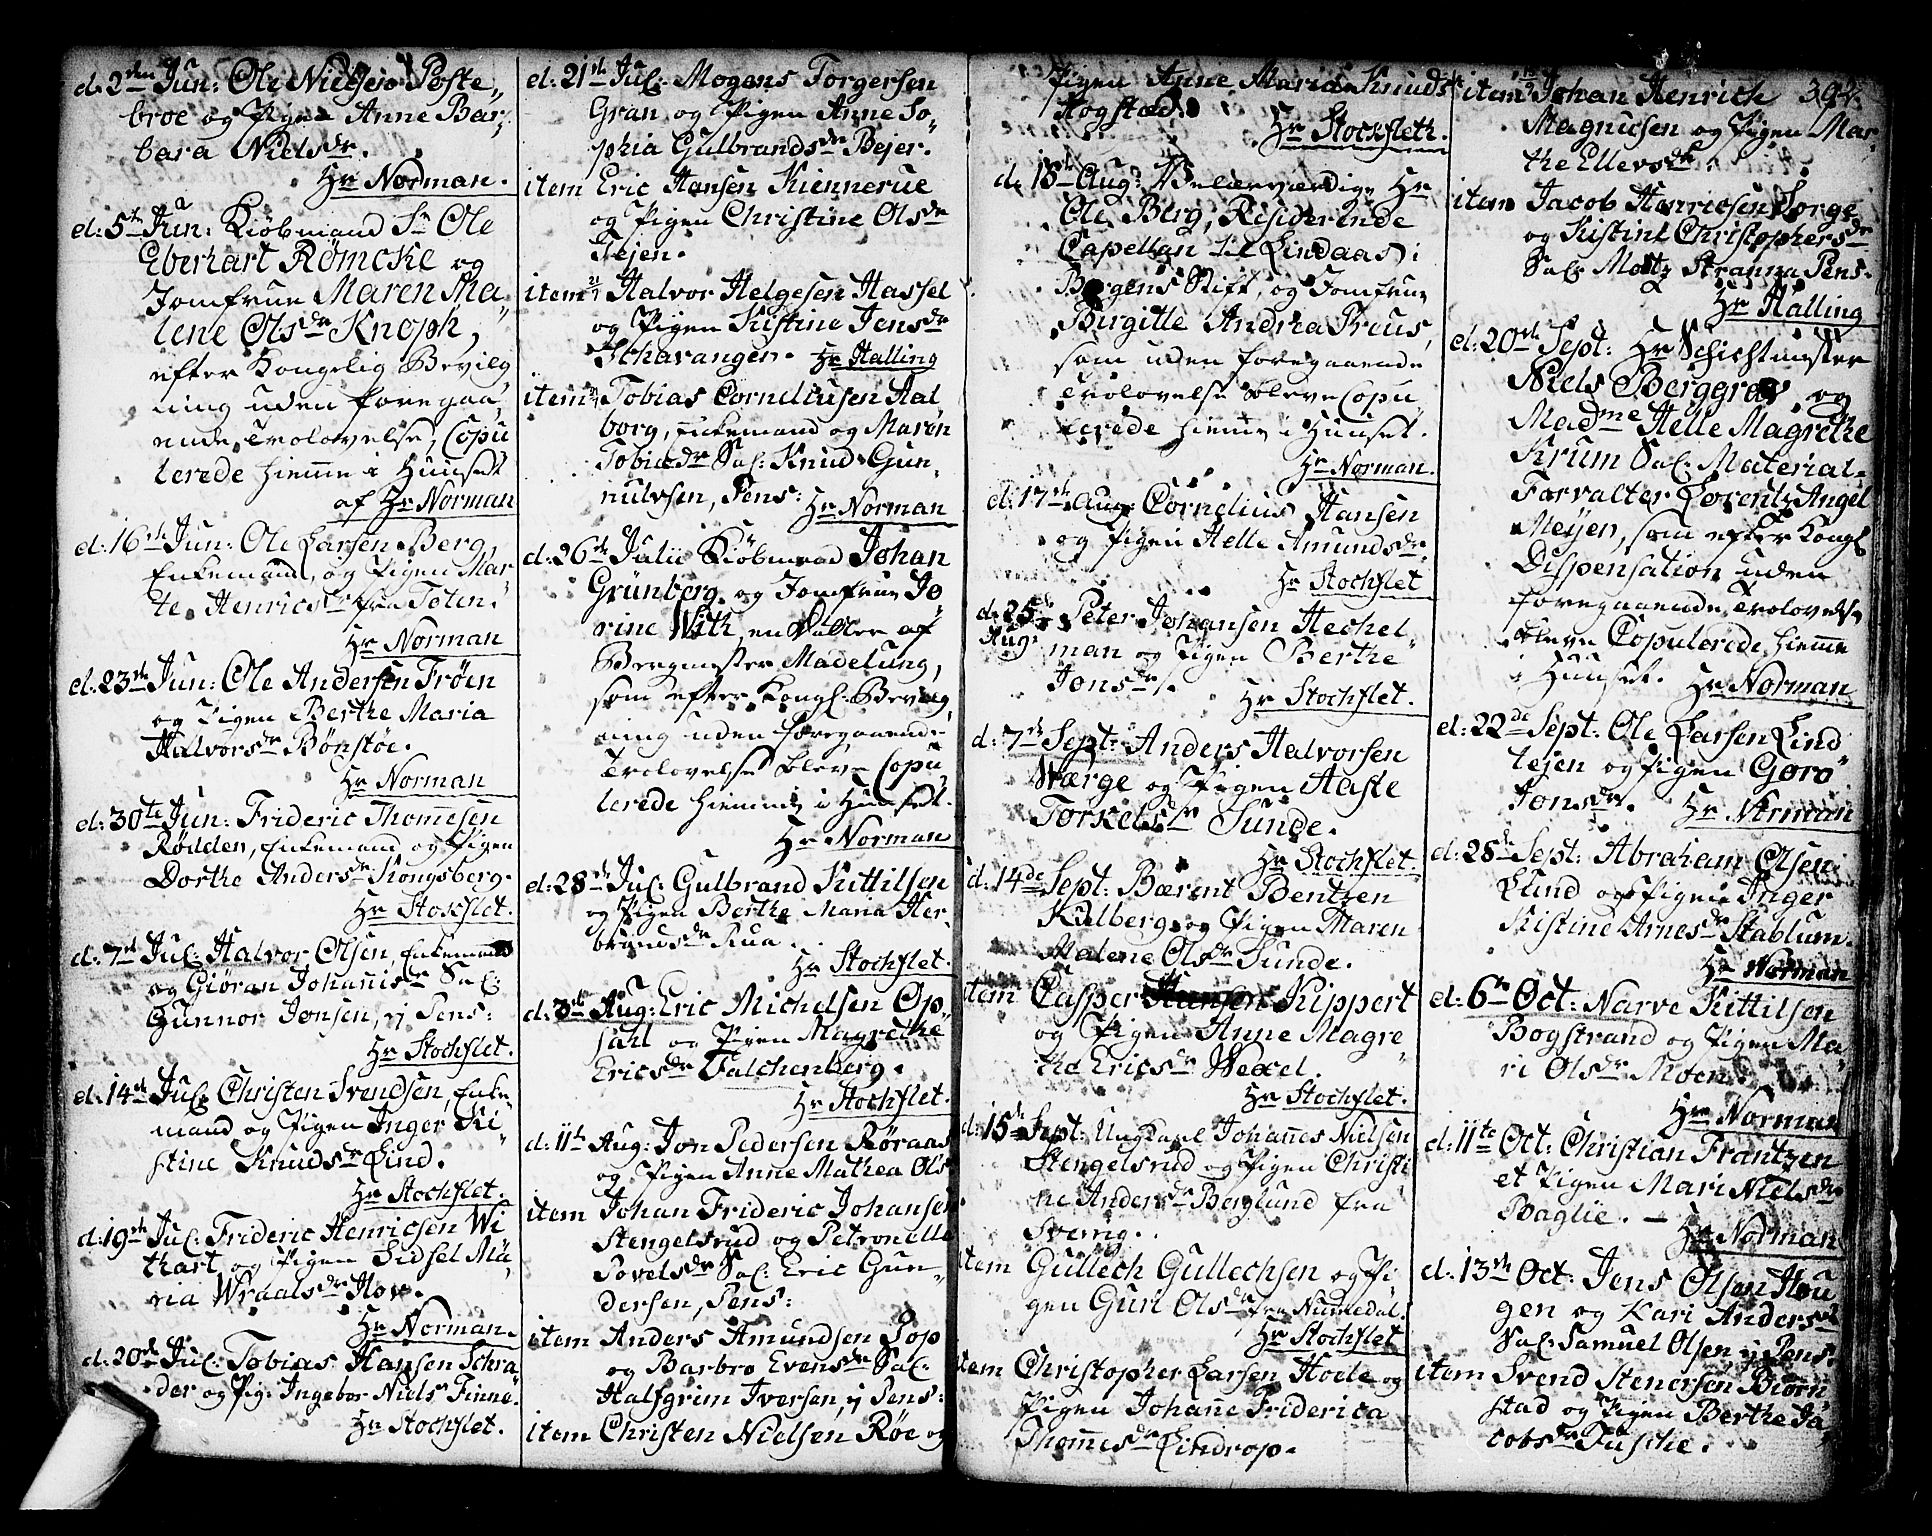 d: 2den Jun: Ole Nielsen Poste„
broe og Pigen Anne Bar„
bara Nielsdr.
Hr Norman.
d: 5te Jun: Kiöbmand Sr Ole
Eberhart Römcke og
Jomfrue Maren Ma„
lene Olsdr Knoph,
efter Kongelig Bevilg
ning uden foregaa„
ende Trolovelse, Copu
lerede hiemme i Huuset
af Hr Norman
d: 16de Jun: Ole Larsen Berg,
Enkemand, og Pigen Mar„
te Henricsdr fra Toten.
Hr Norman
d: 23de Jun: Ole Andersen Tröen
og Pigen Berthe Maria
Halvorsdr Bönstöe.
Hr Norman
d: 30te Jun: Frideric Thomesen
Rödden, Enkemand og Pigen
Dorthe Andersdr Kongsberg.
Hr Stockflet.
d: 7de Jul: Halvor Olsen, Enkemand
og Giöran Johannisdr Sal:
Gunnor Jonsen, ij Pens:
Hr Stockflet.
d: 14de Jul: Christen Svendsen, Enke„
mand og Pigen Inger Ki„
stine Knudsdr Lind.
Hr Stockflet.
d: 19de Jul: Frideric Henricsen Wi
thart og Pigen Sidsel Ma„
ria Wraalsdr Hov.
Hr Norman.
d: 20de Jul: Tobias Hansen Schra
der og Pig: Ingebor Niels Finne.
Hr Stockflet.
d: 21de Jul: Mogens Torgersen
Gran og Pigen Anne So„
phia Gulbrandsdr Bejer.
item Eric Hansen Kiennerue
og Pigen Christine Olsdr
Tejen.
item Halvor Helgesen Hassel
og Pigen Kistine Jensdr
Schavangen. Hr Halling
item Tobias Corneliusen Aal
borg, Enkemand og Maren
Tobiasdr Sal: Knud Gun„
nulvsen, Pens: Hr Norman
d: 26de Julii Kiöbmand Johan
Grünberg og Jomfrue Jo
rine With, en Datter af
Bergmester Madelung,
som efter Kongl: Bevilg„
ning uden foregaaende
Trolovelse bleve Copu„
lerede hiemme i Huuset.
Hr Norman
d: 28de Jul: Gulbrand Kittilsen
og Pigen Berthe Maria Her„
brandsdr Rua.
Hr Stockflet.
d: 3de Aug: Eric Michelsen Op„
sahl og Pigen Magrethe
Ericsdr Falchenberg.
Hr Stockflet.
d: 11te Aug: Jon Pedersen Röraas
og Pigen Anne Mathea Ols
item Johan Frideric Johansen
Stengelsrud og Petronelle
Povelsdr Sal: Eric Gun„
dersen, Pens:
item Anders Amundsen Pop
og Barbro Evensdr Sal:
Halfgrim Iversen, ij Pens:
item Christen Nielsen Röe og
Pigen Anne Maria Knudsdr
Hogstad.
Hr Stockfleth.
d: 15de Aug: Velærværdige Hr
Ole Berg, Residerende
Capellan til Lindaas i
Bergens Stift, og Jomfrue
Birgitte Andrea Preus,
som uden foregaaende
Trolovelse bleve Copu„
lerede hiemme i Huuset.
Hr Norman.
d: 17de Aug: Cornelius Hansen
og Pigen Helle Amundsdr
Hr Stockflet
d: 25de Peter Johansen Hechel„
Aug: man og Pigen Berthe
Jonsdr.
Hr Stockflet.
d: 7de Sept: Anders Halvorsen
Værge og Pigen Aaste
Torkelsdr Sunde.
Hr Stockflet.
d: 14de Sept: Bærent Bentzen
Kulberg og Pigen Maren
Malene Olsdr Sunde.
item Casper Kippert
og Pigen Anne Magre„
the Ericsdr Wexel.
Hr Stockflet.
d: 15de Sept: Ungkarl Johannes Nielsen
Stengelsrud og Pigen Christi
ne Andersdr Berglund fra
Sverrig.
item Gullech Gullechsen og Pi
gen Guri Olsdr fra Numedal.
Hr Stockflet
item Christopher Larsen Hoele og
Pigen Johanne Friderica
Thomesdr Lindrop.
item Johan Henrich 392.
Magnusen og Pigen Mar„
the Ellevsdr.
item Jacob Henricsen Torge
og Kistine Christophersdr
Sal: Moltz Stranna Pens.
Hr Halling
d: 20de Sept: Hr Schichtmester
Niels Berggren og
Madme Helle Magrethe
Krum Sal: Material„
Forvalter Lorentz Angel
Meijer, som efter Kongl
Dispensation uden
foregaaende Trolovelse
bleve Copulerede hiemme
i Huuset. Hr Norman
d: 22de Sept: Ole Larsen Lind
tejen og Pigen Goro
Jonsdr. Hr Norman
d: 28de Sept: Abraham Olsen
Lund og Pigen Inger
Kistine Arnesdr Stablum.
Hr Norman
d: 6te Oct: Narve Kittilsen
Bogstrand og Pigen Ma„
ri Olsdr Moen.
Hr Norman
d: 11te Oct: Christian Frantzen
et Pigen Mari Nielsdr
Baglie. —
Hr Norman
d: 13de Oct: Jens Olsen Hou
gen og Kari Andersdr
Sal: Samuel Olsen ij Pens.
item Svend Stenersen Biörn
stad og Pigen Berthe Ja„
cobsdr Fuschie.